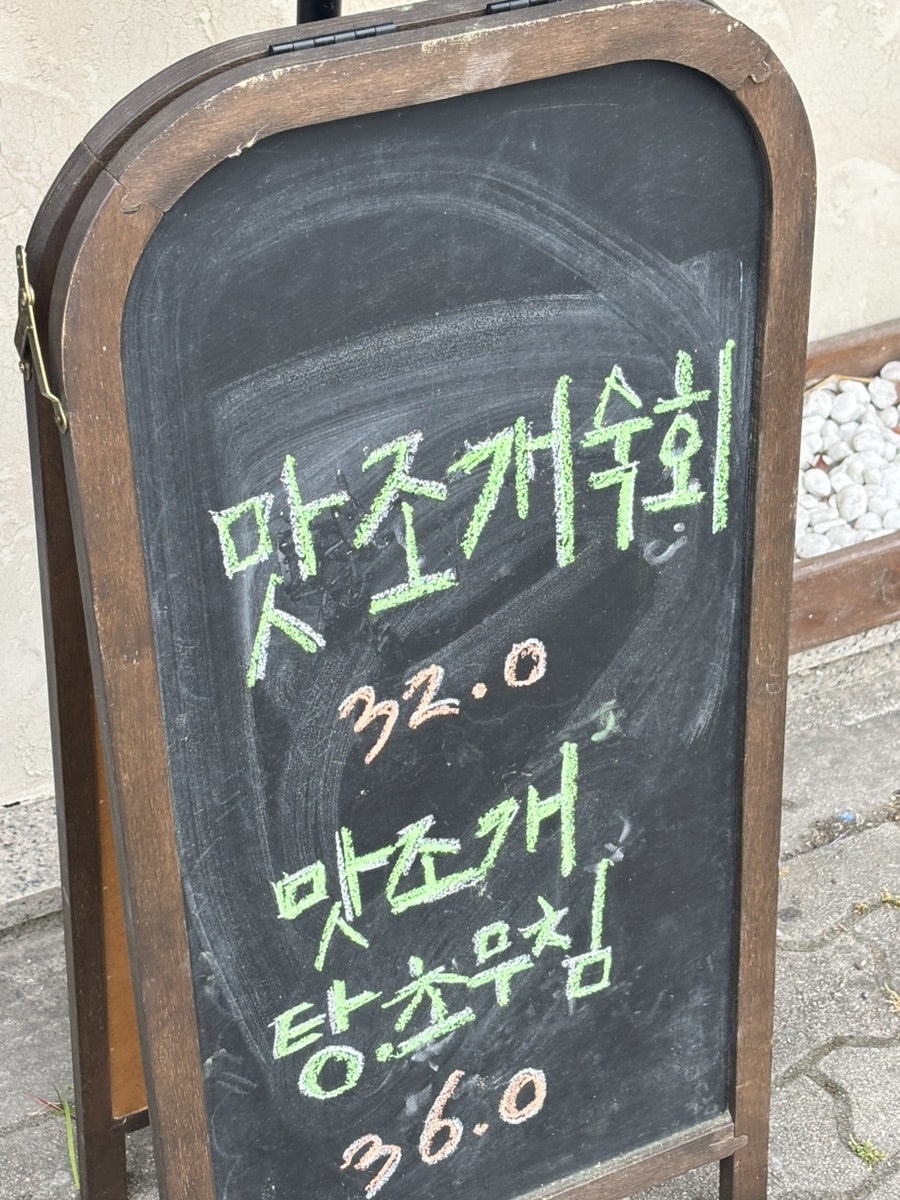 맛조개숙회
32.0
맛조개
탕.초무침
36.0